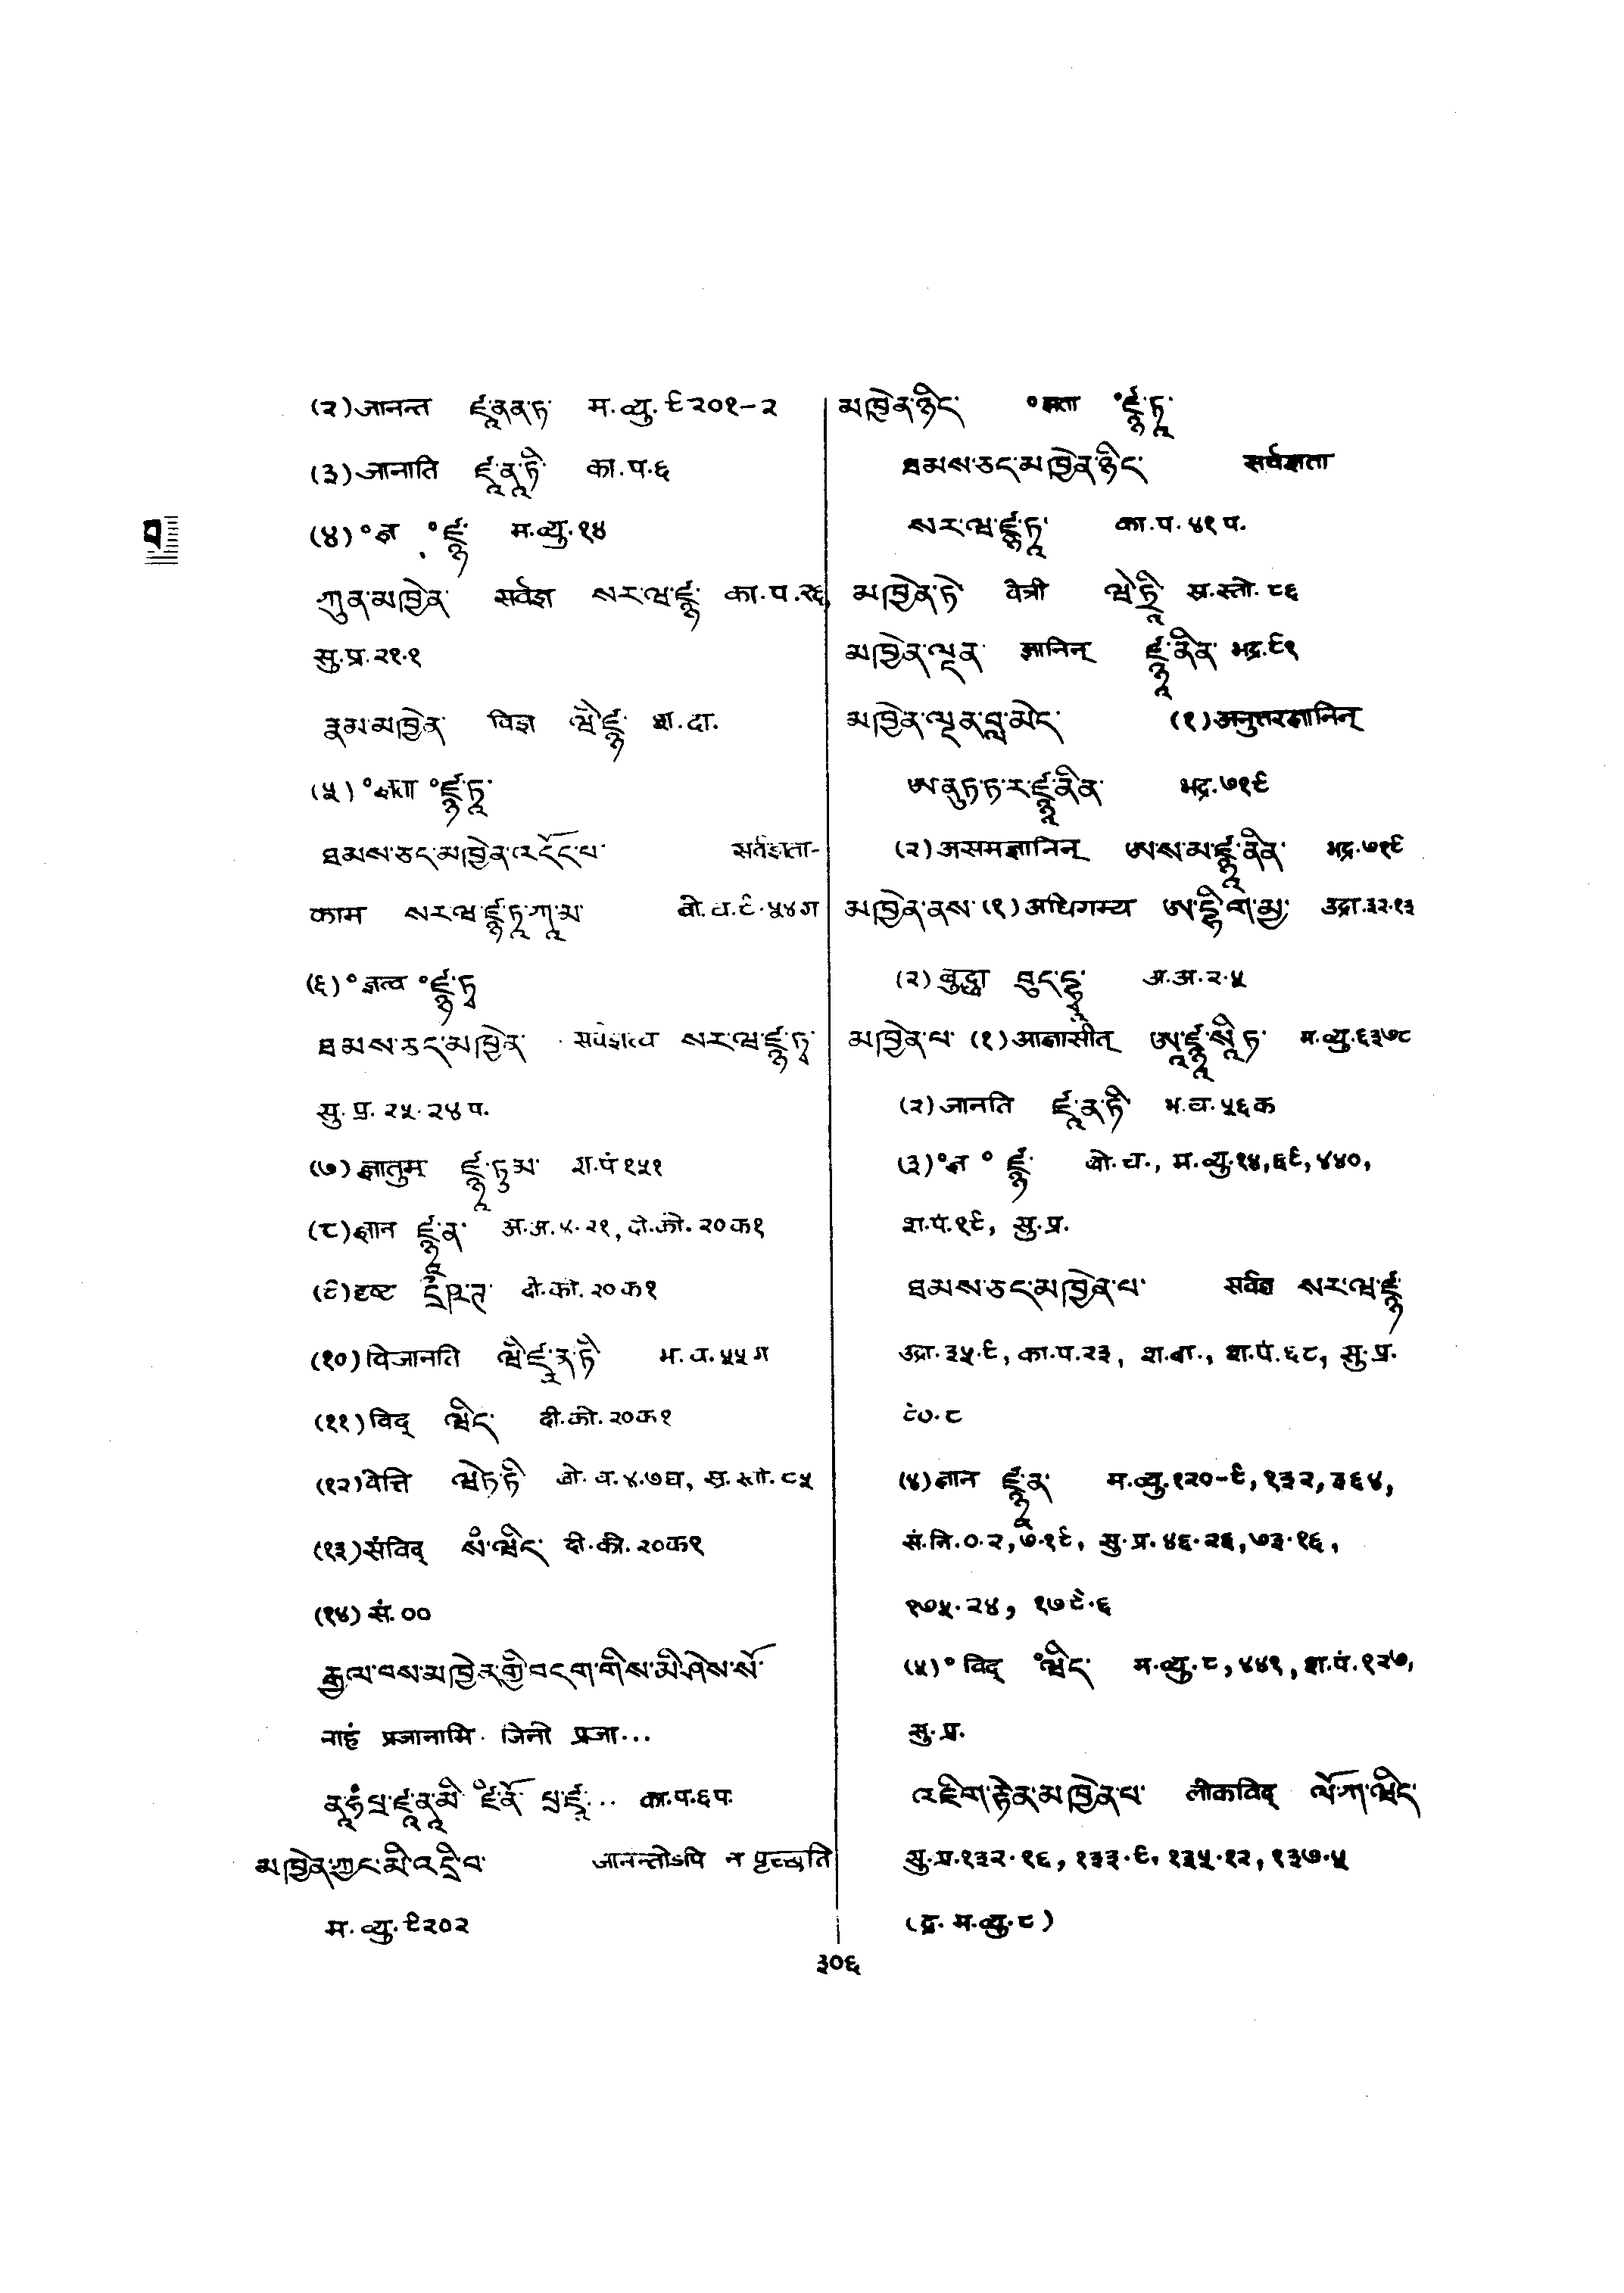 (२) जानन्त ཛཱ་ནན་ཏ་ म.व्यु.९२०१-२
(३) जानाति ཛཱ་ནཱ་ཏི་ का.प.६
(४) °ज्ञ °ཛྙ་ म.व्यु.१४
ཀུན་མཁྱེན་ सर्वज्ञ སརྦ་ཛྙ་ का.प.२६,
सु.प्र.२१.१
རྣམ་མཁྱེན་ विज्ञ ཝི་ཛྙ་ श.दा.
(५) °ज्ञता °ཛྙ་ཏཱ་
ཐམས་ཅད་མཁྱེན་འདོད་པ་ सर्वज्ञता-
काम སརྦ་ཛྙ་ཏཱ་ཀཱ་མ་ बो.च.९.५४ग
(६) °ज्ञत्व °ཛྙ་ཏྭ
ཐམས་ཅད་མཁྱེན་ सर्वज्ञत्व སརྦ་ཛྙ་ཏྭ་
सु.प्र.२५.२४प.
(७) ज्ञातुम् ཛྙཱ་ཏུམ་ श.पं१५१
(८) ज्ञान ཛྙཱ་ན་ अ.अ.४.२१, दो.को.२०क१
(९) दृष्ट དྲྀཥྚ་ दो.को.२०क१
(१०) विजानति ཝི་ཛཱ་ན་ཏི་ भ.च.५५ग
(११) विद् ཝིད་ दी.को.२०क१
(१२) वेत्ति ཝེཏ་ཏི་ बो.च.४.७घ, स्र.स्तो.८५
(१३) संविद् སཾ་ཝིད་ दी.को.२०क१
(१४) सं.००
རྒྱལ་བས་མཁྱེན་གྱི་བདག་གིས་མི་ཤེས་སོ་
नाहं प्रजानामि जिनो प्रजा...
ནཱ་ཧཾ་པྲ་ཛཱ་ནཱ་མི་ ཛི་ནོ་ པྲ་ཛཱ... का.प.६प.
མཁྱེན་ཀྱང་མི་འདྲི་བ་ जानन्तोऽपि न पृच्छति
म.व्यु.९२०२
མཁྱེན་ཉིད་ °ज्ञता °ཛྙ་ཏཱ་
ཐམས་ཅད་མཁྱེན་ཉིད་ सर्वज्ञता
སརྦ་ཛྙ་ཏཱ་ का.प.४१प.
མཁྱེན་ཏེ་ वेत्री ཝེ་ཏྲཱི་ स्र.स्तो.८६
མཁྱེན་ལྡན་ ज्ञानिन् ཛྙཱ་ནིན་ भद्र.९१
མཁྱེན་ལྡན་བླ་མེད་ (१) अनुत्तरज्ञानिन्
ཨ་ནུཏ་ཏ་ར་ཛྙཱ་ནིན་ भद्र.७१९
(२) असमज्ञानिन् ཨ་ས་མ་ཛྙཱ་ནིན་ भद्र.७१९
མཁྱེན་ནས་ (१) अधिगम्य ཨ་དྷི་ག་མྱ་ उद्रा.३२.१३
(२) बुद्ध्वा བུད་དྷྭཱ་ अ.अ.२.५
མཁྱེན་པ་ (१) आज्ञासीत् ཨཱ་ཛྙཱ་སཱིཏ་ म.व्यु.६३७८
(२) जानति ཛཱ་ན་ཏི་ भ.च.५६क
(३) °ज्ञ °ཛྙ་ बो.च., म.व्यु.१४,६९,४४०,
श.पं.१९, सु.प्र.
ཐམས་ཅད་མཁྱེན་པ་ सर्वज्ञ སརྦ་ཛྙ་
उद्रा.३५.९, का.प.२३, श.दा., श.पं.६८, सु.प्र.
९०.८
(४) ज्ञान ཛྙཱ་ན་ म.व्यु.१२०-९, १३२, ३६४,
सं.नि.०.२, ७.१९, सु.प्र.४६.२६, ७३.१६,
१७५.२४, १७९.६
(५) °विद् °ཝིད་ म.व्यु.८, ४४१, श.पं.१२७,
सु.प्र.
འཇིག་རྟེན་མཁྱེན་པ་ लोकविद् ལོ་ཀ་ཝིད་
सु.प्र.१३२.१६, १३३.९, १३५.१२, १३७.५
(द्र. म.व्यु.८)
३०६